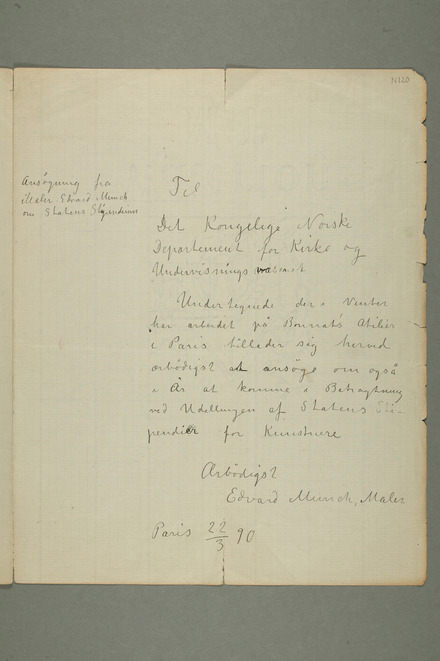 N120
Ansögning fra
Maler Edvard Munch
om Statens Stipendium
Til
Det Kongelige Norske
Departement for Kirke og
Undervisnings
Undertegnede der i Vinter
har arbeidet på Bonnats Atilier
i Paris tillader sig herved
ærbödigst at ansöge om også
i År at komme i Betragtning
ved Udelingen af Statens Sti-
pendier for Kunstnere
Ærbödigst
Edvard Munch, Maler
Paris 22/3 90